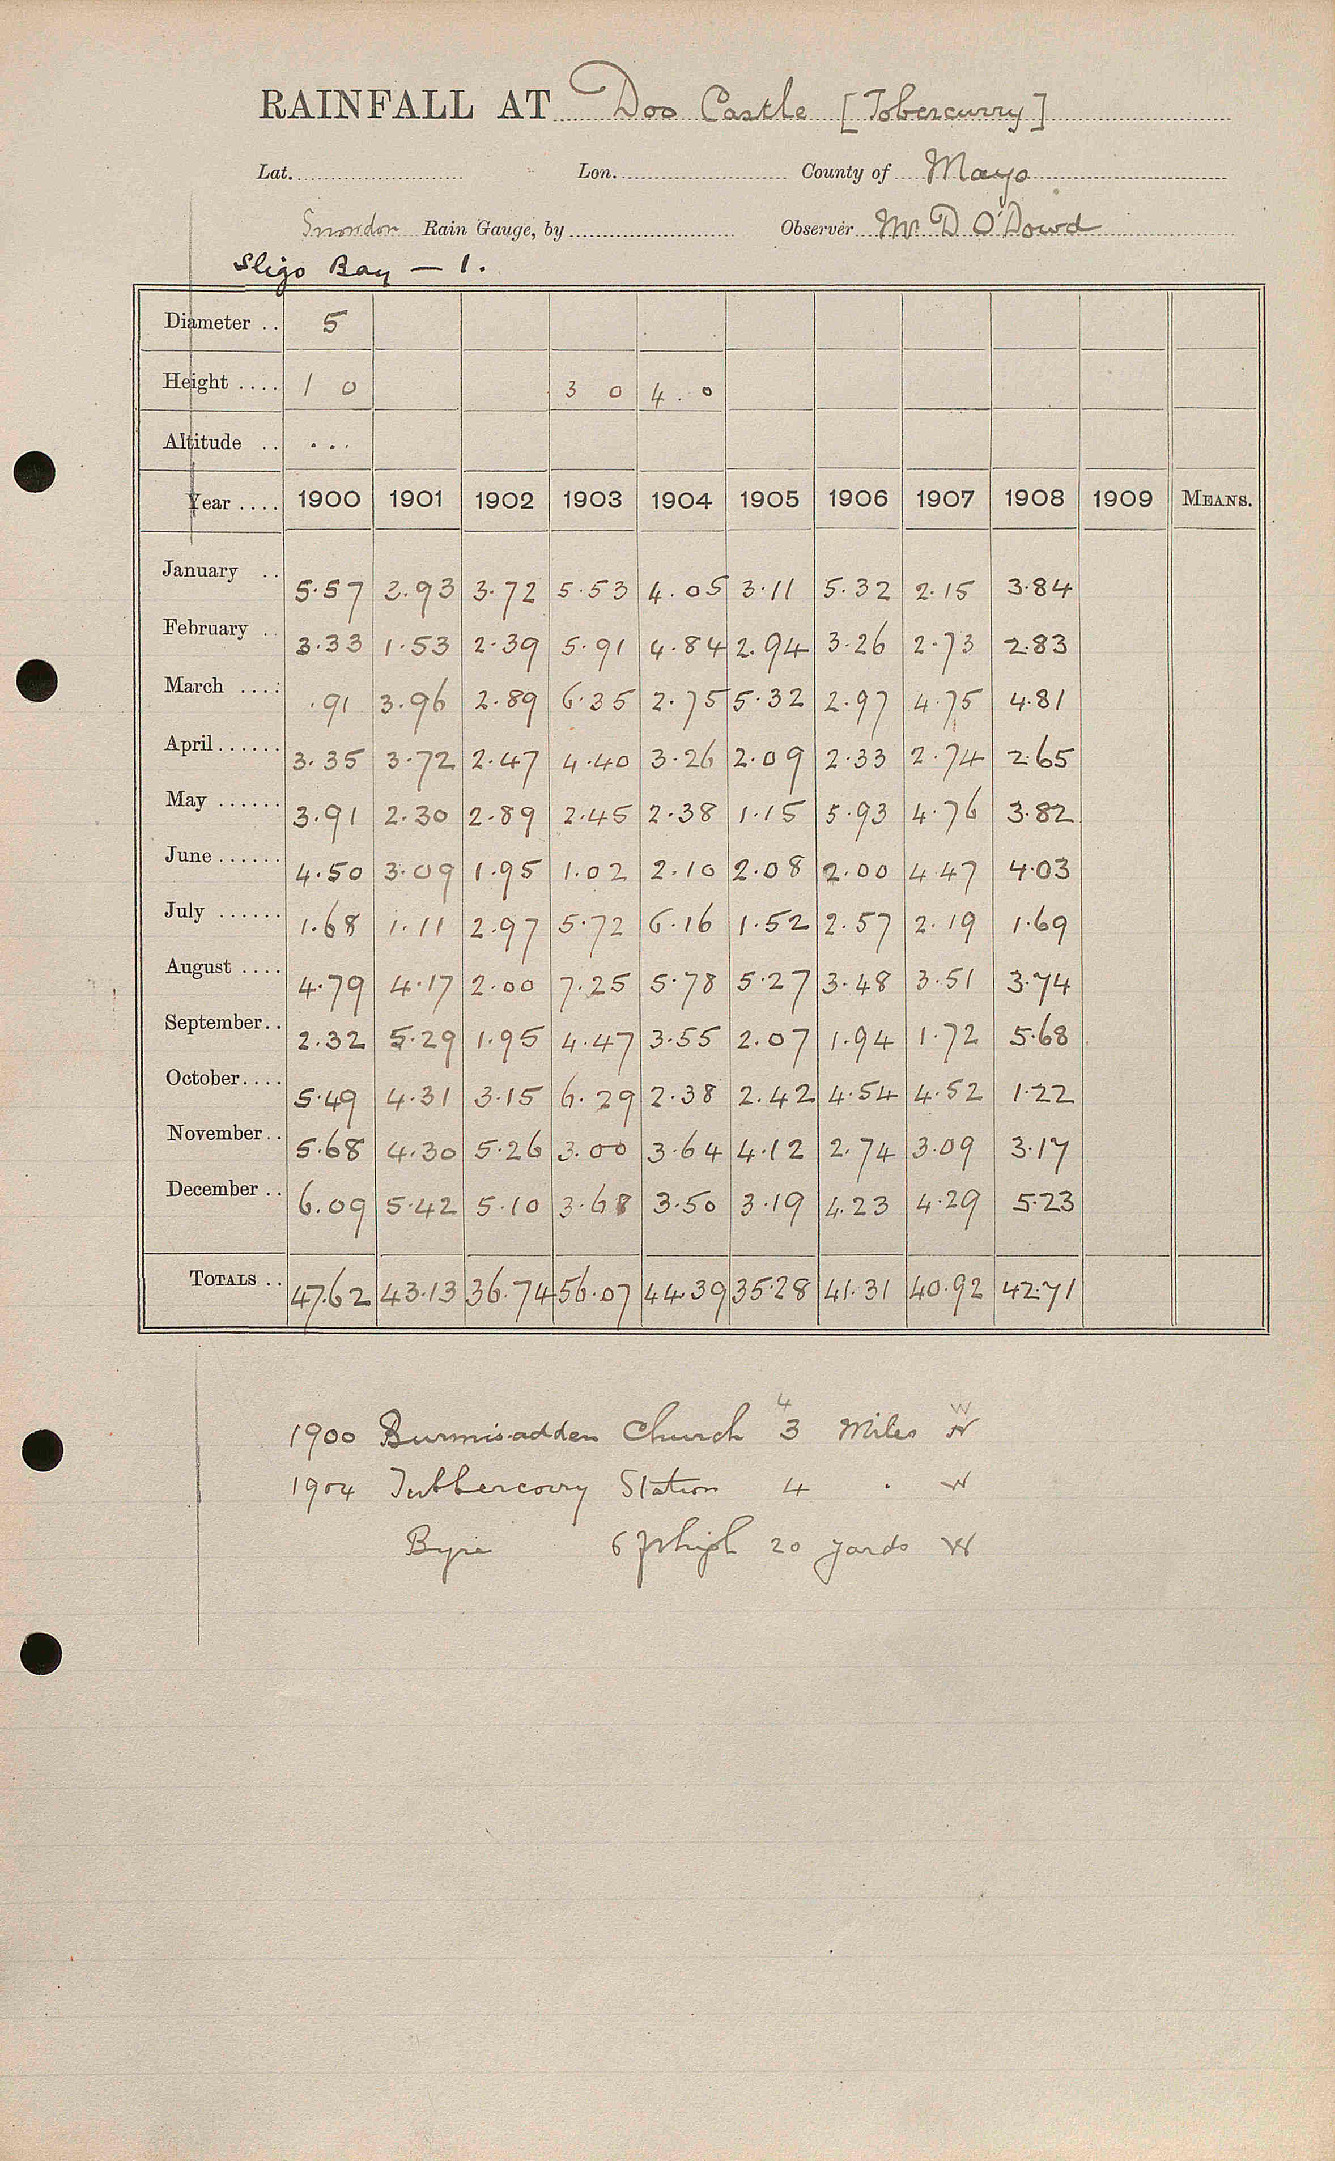 RAINFALL AT Doo Castle [Tobercurry]
Lat. Lon. County of Mayo
Snowdon Rain Gauge, by Observer Mr D O'Dowd
Sligo Bay — 1.
Diameter .. 5
Height .... 1 0 3 0 4.0
Altitude .. ...
Year .... 1900 1901 1902 1903 1904 1905 1906 1907 1908 1909 MEANS.
January .. 5.57 3.93 3.72 5.53 4.05 3.11 5.32 2.15 3.84
February .. 3.33 1.53 2.39 5.91 4.84 2.94 3.26 2.73 2.83
March .... .91 3.96 2.89 6.35 2.75 5.32 2.97 4.75 4.81
April ...... 3.35 3.72 2.47 4.40 3.26 2.09 2.33 2.74 2.65
May ...... 3.91 2.30 2.89 2.45 2.38 1.15 5.93 4.76 3.82
June ...... 4.50 3.09 1.95 1.02 2.10 2.08 2.00 4.47 4.03
July ...... 1.68 1.11 2.97 5.72 6.16 1.52 2.57 2.19 1.69
August .... 4.79 4.17 2.00 7.25 5.78 5.27 3.48 3.51 3.74
September.. 2.32 5.29 1.95 4.47 3.55 2.07 1.94 1.72 5.68
October.... 5.49 4.31 3.15 6.29 2.38 2.42 4.54 4.52 1.22
November.. 5.68 4.30 5.26 3.00 3.64 4.12 2.74 3.09 3.17
December .. 6.09 5.42 5.10 3.68 3.50 3.19 4.23 4.29 5.23
TOTALS .. 47.62 43.13 36.74 56.07 44.39 35.28 41.31 40.92 42.71
4 W
1900 Bunnisadden Church 3 Miles
1904 Tubbercorry Station 4 . W
Byre 6 ft high 20 yards W